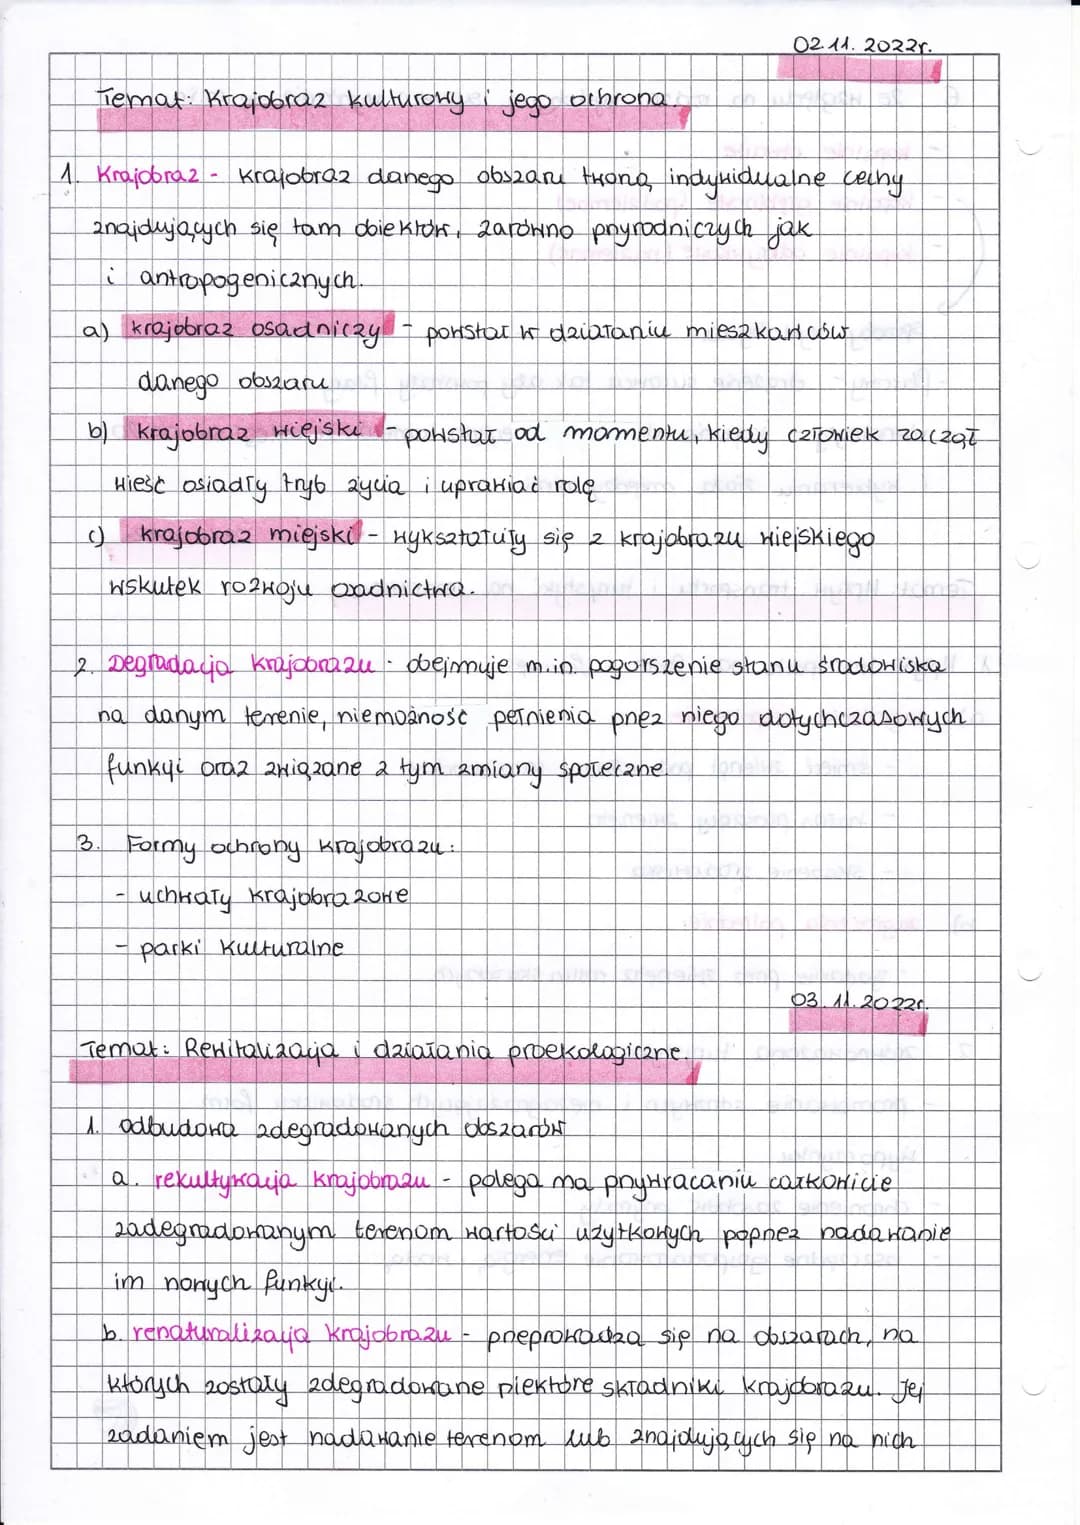 02.11.2022r.
Temat: Krajobraz kulturowy i jego ochrona.
1. Krajobraz - krajobraz danego obszaru tworzą indywidualne cechy
znajdujących się tam obiektów, zarówno przyrodniczych jak
i antropogenicznych.
a) krajobraz osadniczy - powstał w działaniu mieszkańców
danego obszaru
b) krajobraz wiejski - powstał od momentu, kiedy człowiek zaczął
wieść osiadły tryb życia i uprawiać rolę
c) krajobraz miejski - wykształtuły się z krajobrazu wiejskiego
wskutek rozwoju osadnictwa.
2. Degradacja krajobrazu - obejmuje m.in. pogorszenie stanu środowiska
na danym terenie, niemożność pełnienia przez niego dotychczasowych
funkcji oraz związane z tym zmiany społeczne.
3. Formy ochrony krajobrazu:
- uchwały krajobrazowe
- parki kulturalne
03.11.2022r.
Temat: Rewitalizacja i działania proekologiczne.
1. odbudowa zdegradowanych obszarów
a. rekultywacja krajobrazu - polega na przywracaniu całkowicie
zadegradowanym terenom wartości użytkowych poprzez nadawanie
im nowych funkcji.
b. renaturalizacja krajobrazu - przeprowadza się na obszarach, na
których zostały zdegradowane niektóre składniki krajobrazu. Jej
zadaniem jest nadawanie terenom lub znajdujących się na nich